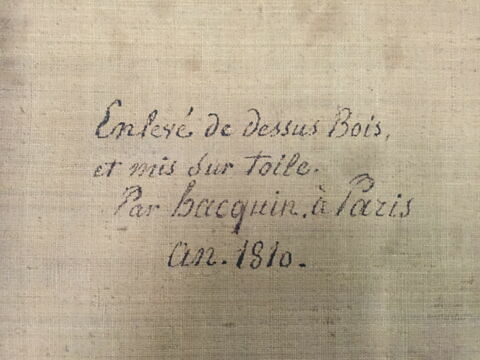 Enlevé de dessus Bois,
et mis sur toile.
Par hacquin, à Paris
an. 1810.